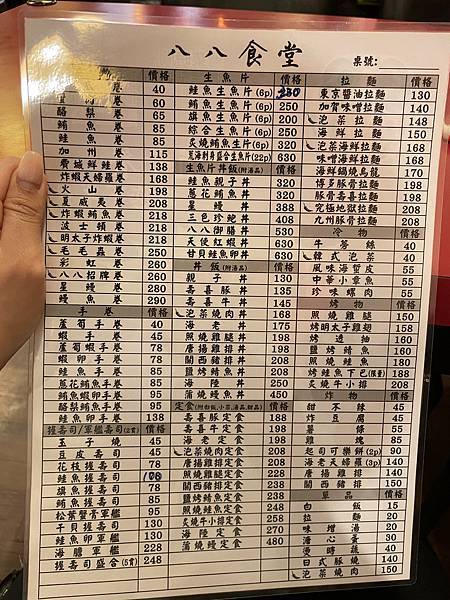 八八食堂
桌號:
價格
40
60
酪梨卷 60
鮪魚卷 85
鮭魚卷 85
加州卷 115
費城鮮鮭卷 138
炸蝦天婦羅卷 168
火山卷 218
夏威夷卷 208
炸蝦鮪魚卷 218
波士頓卷 218
明太子炸蝦卷 218
毛毛蟲卷 250
彩虹卷 260
八八招牌卷 260
星鰻卷 280
鰻魚卷 290
手卷 價格
蘆筍手卷 40
蝦手卷 45
蘆筍蝦手卷 60
蝦卵手卷 60
鮭魚手卷 85
蔥花鮪魚手卷 95
鮪魚蝦卵手卷 95
酪梨鮪魚手卷 95
鮭魚卵手卷 138
握壽司/軍艦壽司(2貫) 價格
玉子燒 45
豆皮壽司 45
花枝握壽司 78
鮭魚握壽司 108
旗魚握壽司 78
鮪魚握壽司 95
松葉蟹膏軍艦 95
干貝握壽司 130
鮭魚卵軍艦 130
海膽軍艦 228
握壽司盛合(5貫) 248
生魚片 價格
鮭魚生魚片(6p) 230
鮪魚生魚片(6p) 250
旗魚生魚片(6p) 200
綜合生魚片(6p) 250
炙燒鮪魚生片(6p) 280
荒海刺身盛合生魚片(22p) 630
生魚片丼飯(附湯品) 價格
鮭魚親子丼 320
蔥花鮪魚丼 320
星鰻丼 388
三色珍鮑丼 408
八八御膳丼 530
天使紅蝦丼 630
甘貝鮭魚卵丼 630
丼飯(附湯品) 價格
親子丼 130
壽喜豚丼 145
壽喜牛丼 145
泡菜燒肉丼 168
海老丼 175
照燒雞腿丼 188
唐揚雞排丼 188
關西豬排丼 188
鹽烤鯖魚丼 208
海陸丼 250
蒲燒鰻魚丼 450
定食(附白飯,小菜,湯品,甜品) 價格
壽喜豚定食 188
壽喜牛定食 188
海老定食 198
泡菜燒肉定食 208
唐揚雞排定食 238
照燒雞腿定食 238
關西豬排定食 238
鹽烤鯖魚定食 258
照燒鮭魚定食 258
炙燒牛小排定食 258
海陸定食 270
蒲燒鰻定食 480
拉麵 價格
東京醬油拉麵 130
加賀味噌拉麵 140
泡菜拉麵 148
海鮮拉麵 150
泡菜海鮮拉麵 168
味噌海鮮拉麵 168
海鮮鍋燒烏龍 170
博多豚骨拉麵 198
豚骨壽喜拉麵 198
究極地獄拉麵 208
九州豚骨拉麵 208
冷物 價格
牛蒡絲 40
韓式泡菜 40
風味海蜇皮 55
中華小章魚 55
珍味螺肉 55
烤物 價格
照燒雞腿 150
烤明太子雞翅 158
烤透抽 160
鹽烤鯖魚 160
照燒鮭魚 180
烤鮭魚下巴(限量) 188
炙燒牛小排 208
炸物 價格
甜不辣 45
炸豆腐 45
薯條 55
雞塊 85
起司可樂餅(2p) 90
海老天婦羅(3p) 140
唐揚雞排 140
關西豬排 150
單品 價格
白飯 15
拉麵 20
味增湯 20
溏心蛋 30
燙時蔬 40
日式豚燒 140
泡菜燒肉 150